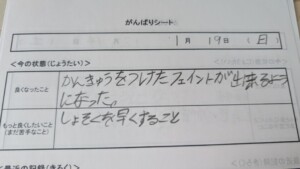 がんばりシート
1月19日(日)
<今の状態(じょうたい)>
良くなったこと
かんきゅうをつけたフェイントが出来るよう
になった。
もっと良くしたいこと
(まだ苦手なこと)
しょそくを早くすること
<最近の記録(きろく)>